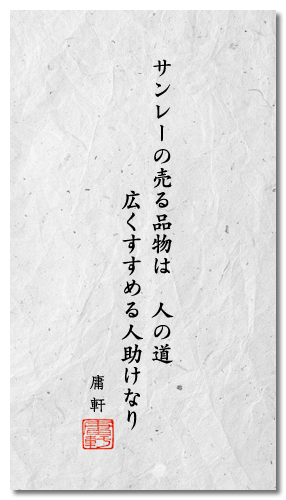 サンレーの売る品物は　人の道
広くすすめる人助けなり
庸軒
庸軒